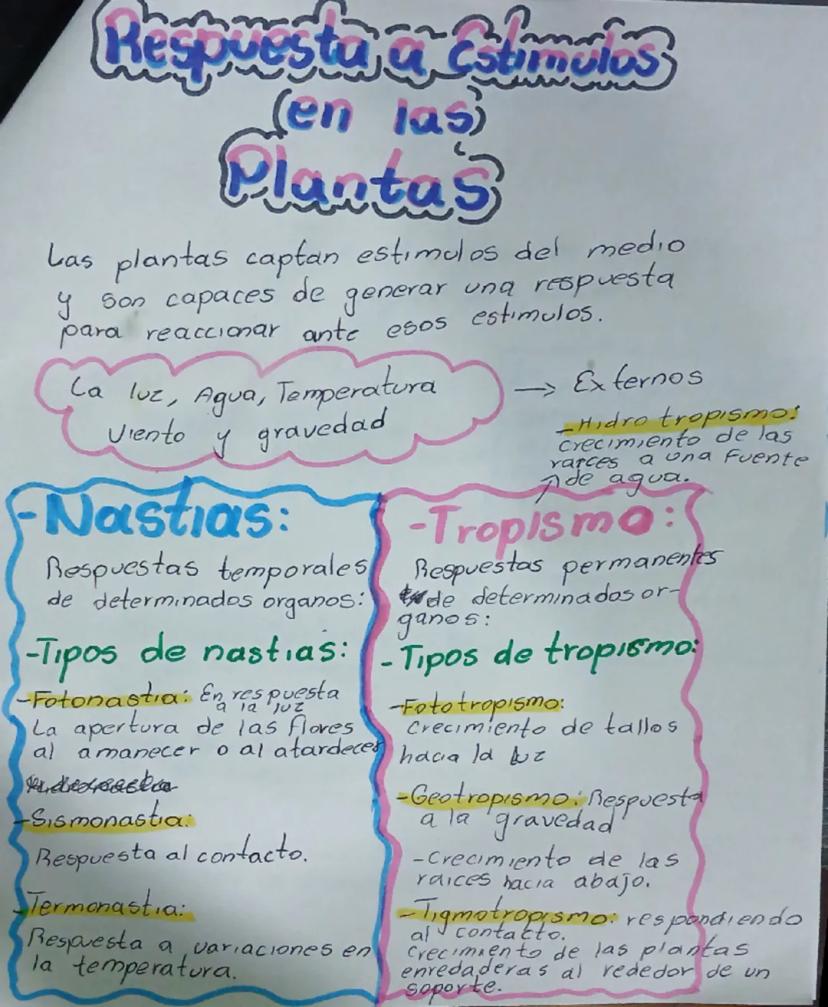 Respuesta a Estimulos
(en las)
Plantas
Las plantas captan estimulos del medio
y son capaces de generar una respuesta
para reaccionar ante esos estimulos.
La luz, Agua, Temperatura
Viento y gravedad
→ Externos
-Hidrotropismo:
crecimiento de las
raices a una Fuente
de agua.
-Nastias:
Respuestas temporales
de determinados organos:
-Tipos de nastias:
-Fotonastia: En respuesta
a la luz
La apertura de las flores
al amanecer o al atardecer
-Sismonastia:
Respuesta al contacto.
-Termonastia:
Respuesta a variaciones en
la temperatura.
-Tropismo:
Respuestas permanentes
de determinados or-
ganos:
-Tipos de tropismo:
-Fototropismo:
Crecimiento de tallos
hacia la luz
-Geotropismo: Respuesta
a la gravedad
-Crecimiento de las
raices hacia abajo.
-Tigmotropismo: respondiendo
al contacto.
Crecimiento de las plantas
enredaderas al rededor de un
soporte.